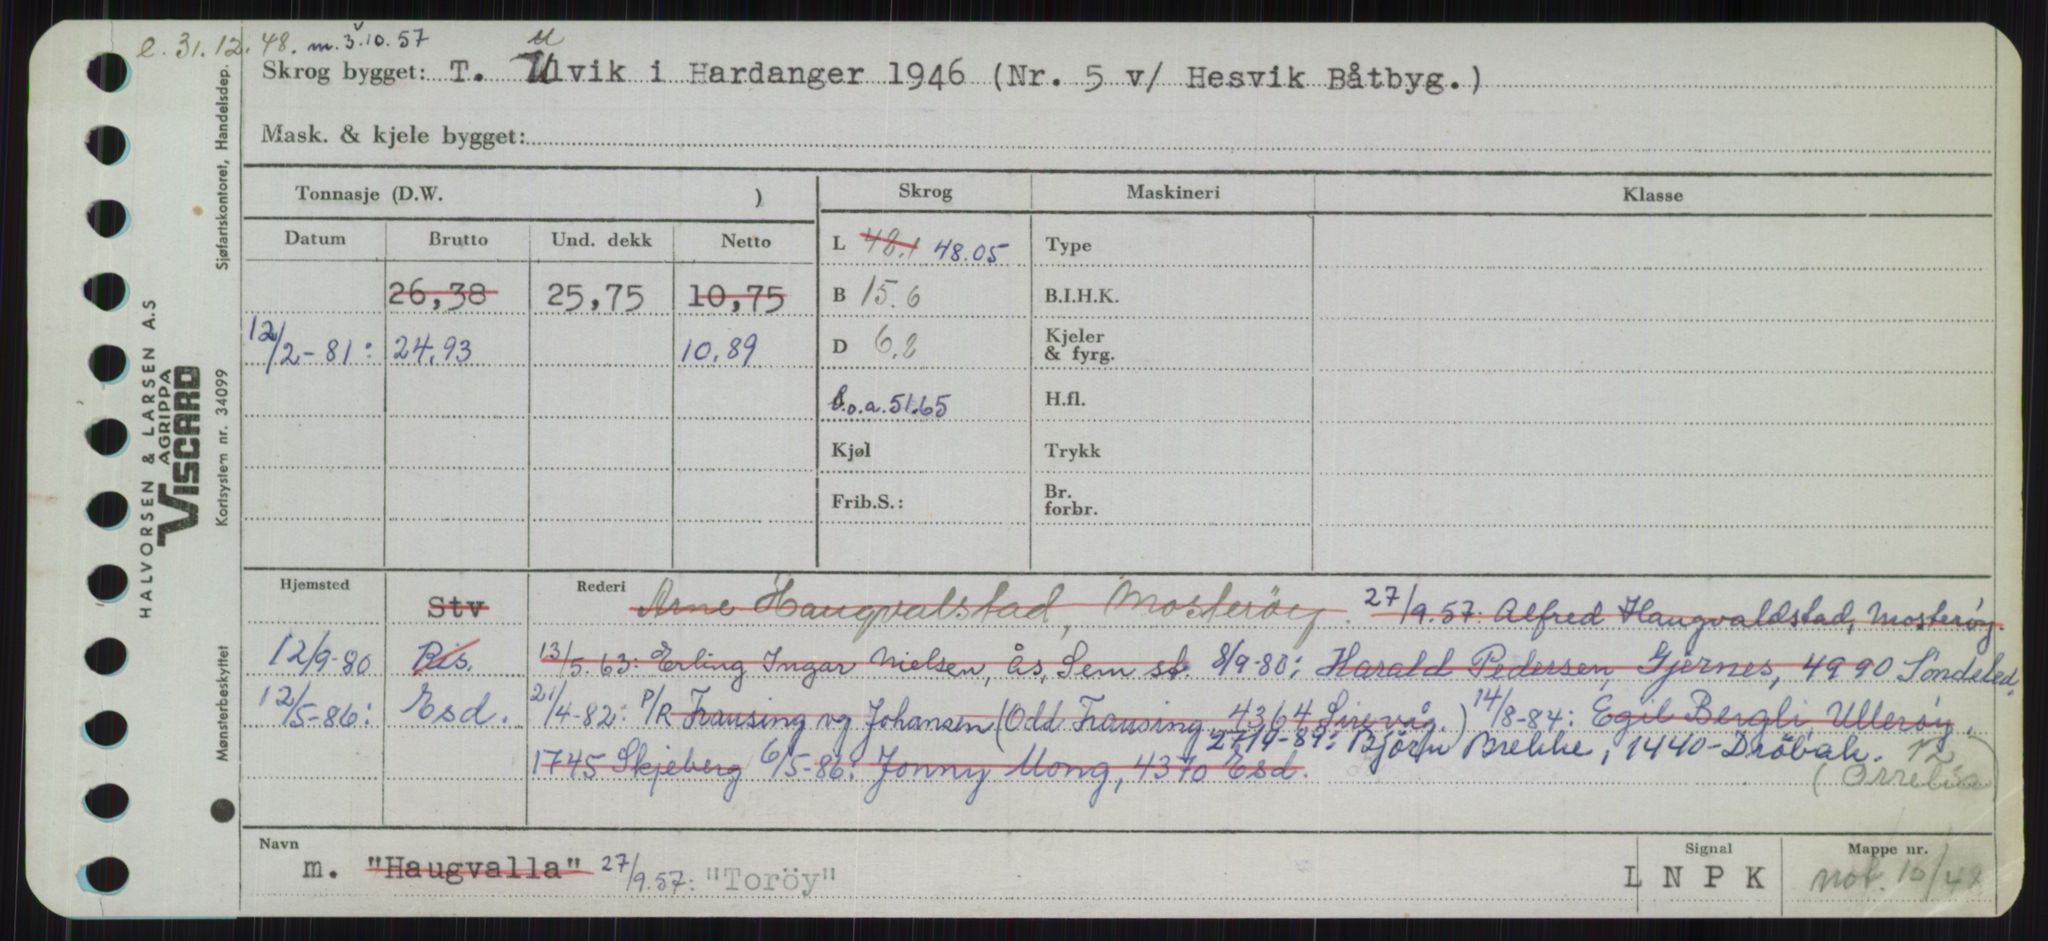 e. 31.12.48. m. 3.10.57
Skrog bygget: T. Ulvik i Hardanger 1946 (Nr. 5 v/ Hesvik Båtbyg.)
Mask. & kjele bygget:
Tonnasje (D.W. )
Skrog Maskineri Klasse
Datum Brutto Und. dekk Netto
26,38 25,75 10,75
12/2-81: 24,93 10,89
L 48.1 48.05
B 15.6
D 6.2
l.o.a. 51.65
Kjøl
Frib.S.:
Type
B.I.H.K.
Kjeler
& fyrg.
H.fl.
Trykk
Br.
forbr.
Hjemsted Rederi
Stv Arne Haugvalstad, Mosterøy. 27/9.57. Alfred Haugvaldstad, Mosterøy.
12/9-80 Ris. 13/5-63: Erling Ingar Nielsen, Ås, Sem st. 8/9-80: Harald Pedersen, Gjernes, 4990 Söndeled.
12/5-86: Esd. 21/4-82: P/R Frausing og Johansen (Odd Frausing 4364 Sirevåg.) 14/8-84: Egil Bergli, Ullerøy,
1745 Skjeberg 6/5-86: Jonny Mong, 4370 Esd. 27/9-89: Björn Brekke, 1440-Dröbak.
Navn Signal Mappe nr.
m. "Haugvalla" 27/9.57: "Toröy" L N P K not. 10/48
HALVORSEN & LARSEN A.S
AGRIPPA
VISCARD
Mønsterbeskyttet
Kortsystem nr. 34099
Sjøfartskontoret, Handelsdep.